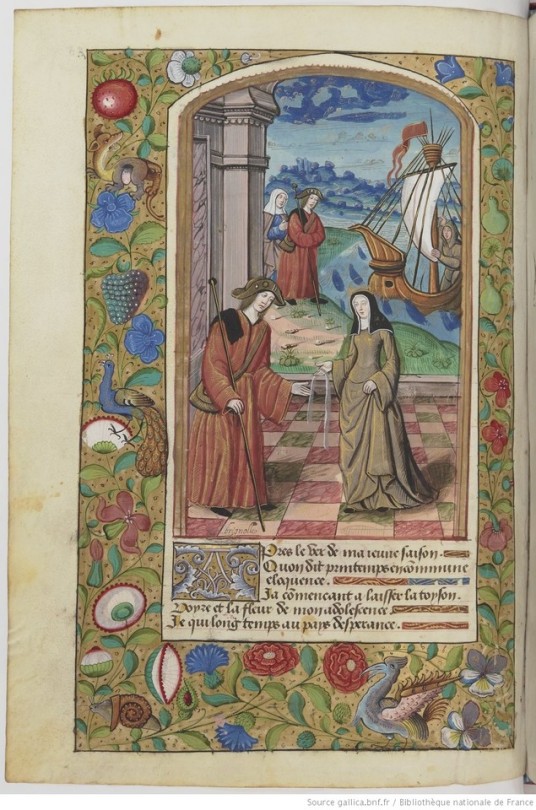 Apres le bet de ma ieune saison.
Quon dit printemps en commune
eloquence.
Ja comencant a laisser la toyson
Voyre et la fleur de mon adolescence.
Je qui long temps au pays desperance.
Source gallica.bnf.fr / Bibliothèque nationale de France